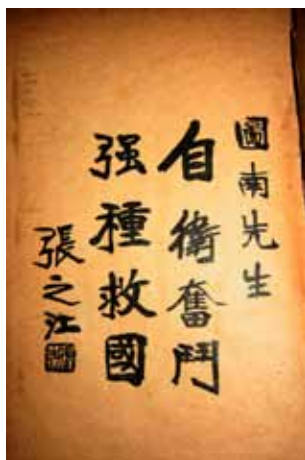 圖南先生
自衛奮鬥
强種救國
張之江